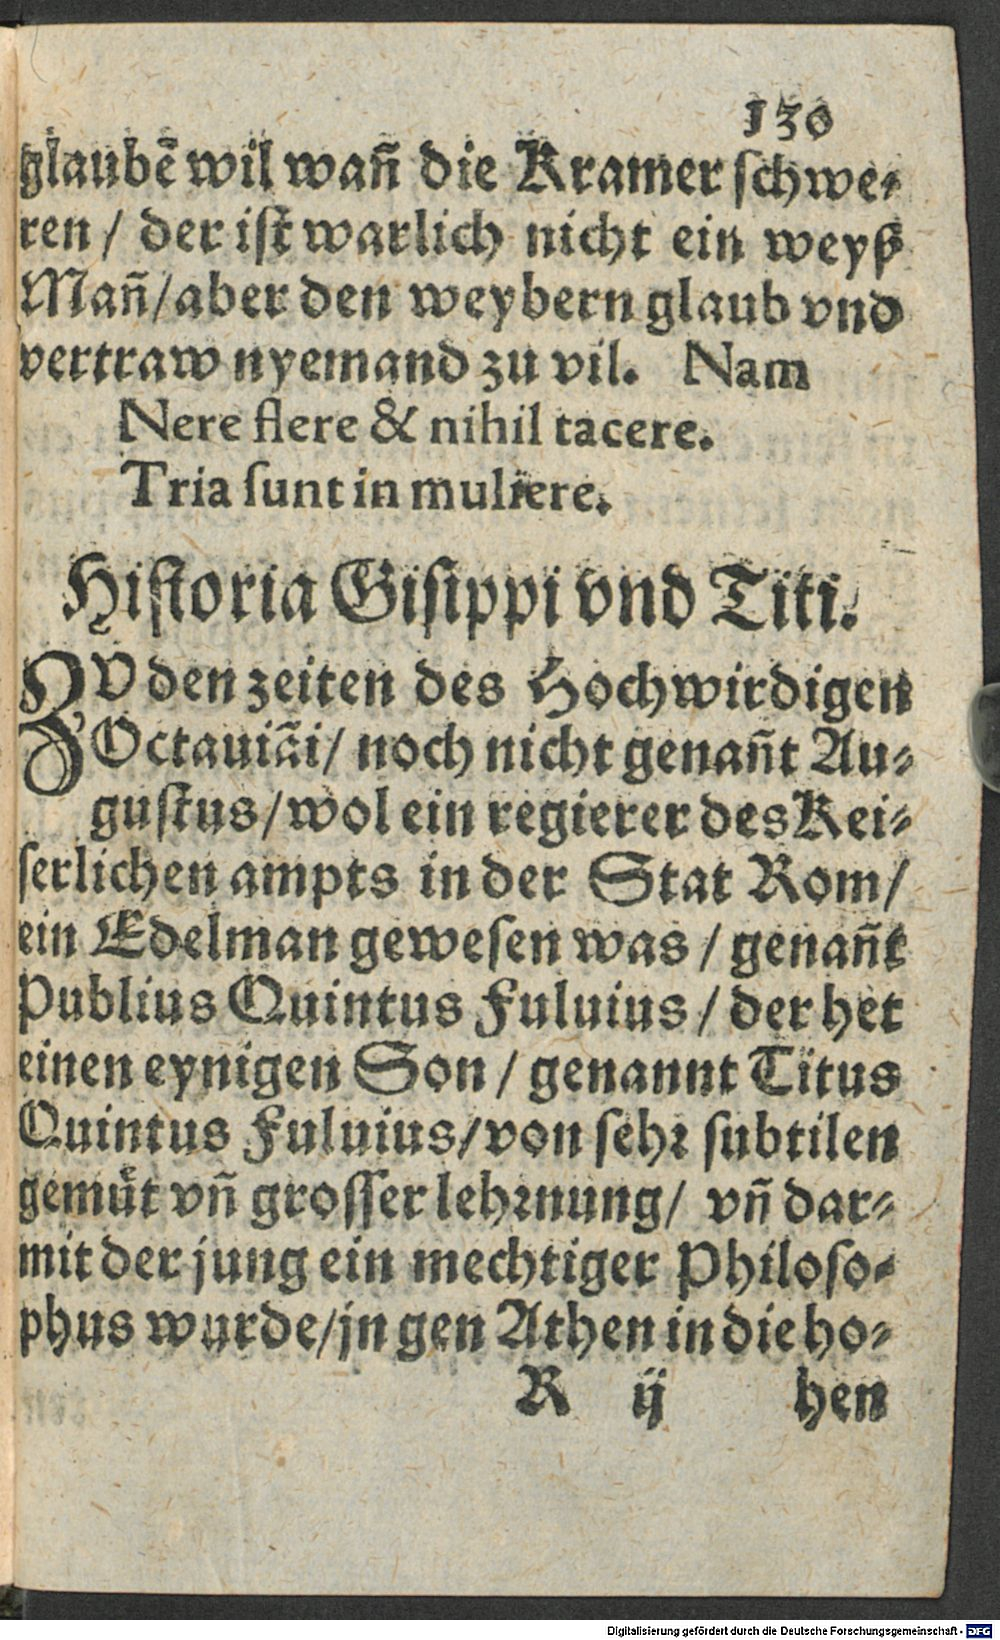 130
glaubē wil wañ die Kramer ſchwe⸗
ren / der iſt warlich nicht ein weyß
Mañ/aber den weybern glaub vnd
vertraw nyemand zu vil. Nam
Nere flere & nihil tacere.
Tria ſunt in muliere.
Hiſtoria Giſippi vnd Titi.
ZV den zeiten des Hochwirdigen
Octauiāi/ noch nicht genañt Au⸗
guſtus/wol ein regierer des Kei⸗
ſerlichen ampts in der Stat Rom/
ein Edelman geweſen was / genañt
Publius Quintus Fuluius / der het
einen eynigen Son / genannt Titus
Quintus Fuluius/von ſehꝛ ſubtilen
gemuͤt vñ groſſer lehꝛnung/ vñ dar⸗
mit der jung ein mechtiger Philoſo⸗
phus wurde/jn gen Athen in die ho⸗
R ij hen
Digitalisierung gefördert durch die Deutsche Forschungsgemeinschaft - DFG